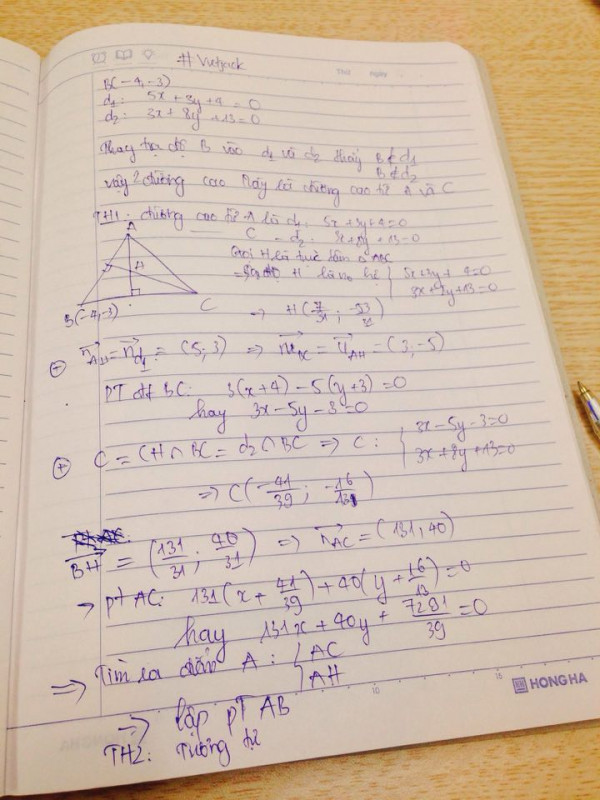 # Vietjack
Thứ ngày
B(-4,-3)
d1: 5x + 3y + 4 = 0
d2: 3x + 8y + 13 = 0
Thay tọa độ B vào d1 và d2 thấy B ∉ d1
B ∉ d2
vậy 2 đường cao này là đường cao từ A và C
TH1: đường cao từ A là d1: 5x + 3y + 4 = 0
C - d2: 3x + 8y + 13 = 0
Gọi H là trực tâm Δ ABC
=> tọa độ H là no hệ { 5x + 3y + 4 = 0
3x + 8y + 13 = 0
A
H
B(-4,-3)
C
→ H(7/31; -53/31)
+ n_AH = n_d1 = (5; 3) => n_BC = u_AH = (3; -5)
PT đt BC: 3(x+4) - 5(y+3) = 0
hay 3x - 5y - 3 = 0
+ C = CH ∩ BC = d2 ∩ BC => C: { 3x - 5y - 3 = 0
3x + 8y + 13 = 0
=> C(-41/39; -16/13)
BH = (131/31; 40/31) => n_AC = (131; 40)
→ pt AC: 131(x + 41/39) + 40(y + 16/13) = 0
hay 131x + 40y + 7291/39 = 0
=> Tìm ra điểm A: { AC
AH
=> lập PT AB
TH2: Tương tự
10
15
HONG HA